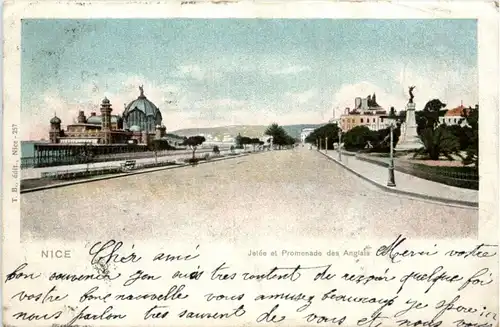 T. B., édit., Nice. - 257
NICE
Jetée et Promenade des Anglais
Cher ami Merci votre
bon souvenir J'en suis tres content de respoir quelque fois
votre bonne nouvelle vous amusez beaucoup je
nous parlon tres souvent de vous et nous vou